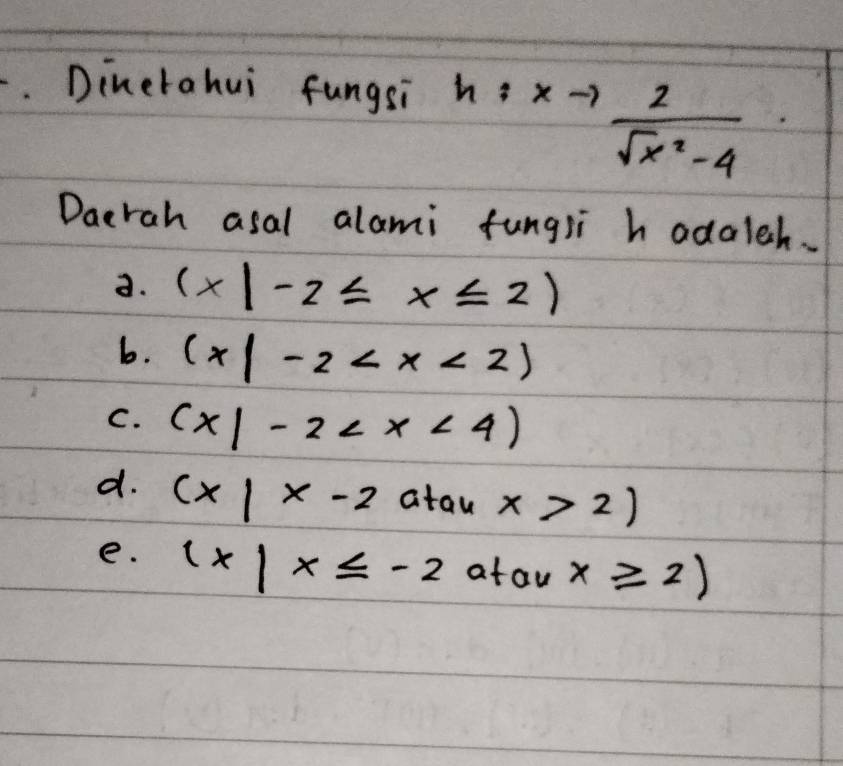 -. Diketahui fungsi h : x → 2/√x² - 4 .
Daerah asal alami fungsi h adalah~
a. (x | -2 ≤ x ≤ 2)
b. (x | -2 < x < 2)
c. (x | -2 < x < 4)
d. (x | x -2 atau x > 2)
e. (x | x ≤ -2 atau x ≥ 2)